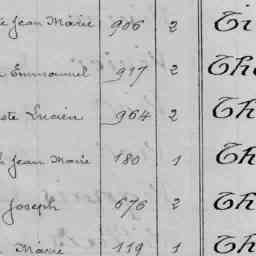 Jean Marie 906 2 Ti
Emmanuel 917 2 The
Lucien 964 2 Th
Jean Marie 180 1 Th
Joseph 676 2 Th
Marie 119 1 Th